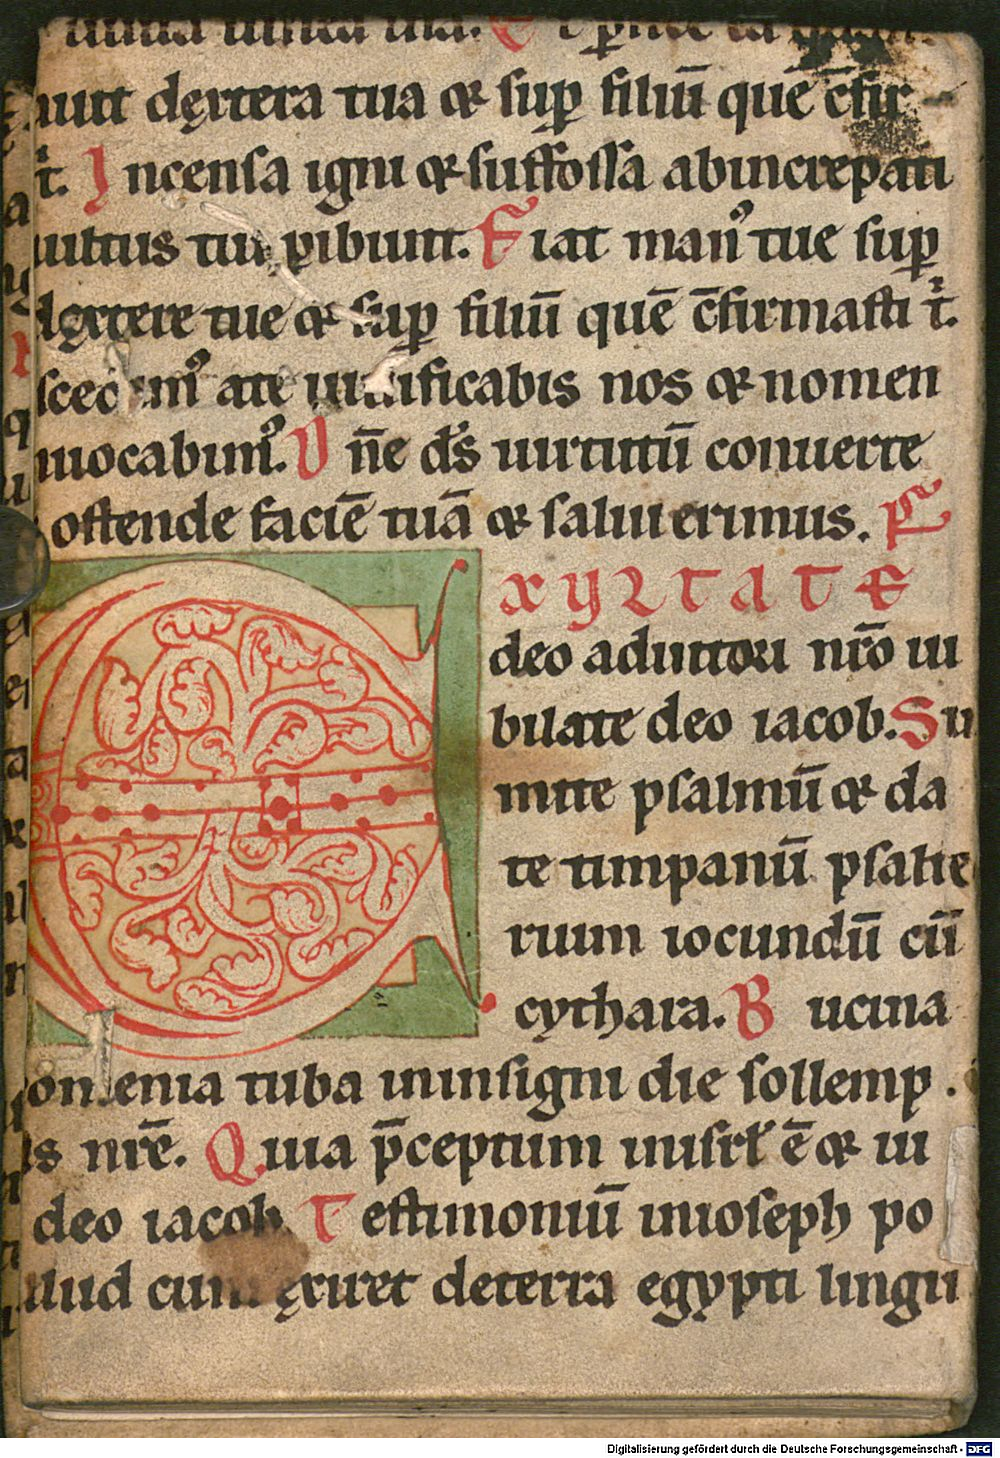 nutt dęxtera tua & sup filiū quē c̄fir
t̄. Incensa igni & suffossa abincrepati
uultus tui pibunt. Fiat man᷒ tue sup
dęxtere tue & sup filiū quē c̄firmasti t̄.
scedim᷒ a te uiuificabis nos & nomen
inuocabim᷒. Dn̄e d̄s uirtutū conuerte
ostende faciē tuā & salui erimus. Ps
EXVLTATE
deo adiutori nr̄o iu
bilate deo iacob. Su
mite psalmū & da
te timpanū psalte
rium iocundū cū
cythara. Bucina
omenia tuba ininsigni die sollemp
is nr̄e. Quia p̄ceptum inisrl̄ ē & iu
deo iacob Testimoniū inioseph po
illud cum ęxiret deterra egypti lingu
Digitalisierung gefördert durch die Deutsche Forschungsgemeinschaft - DFG